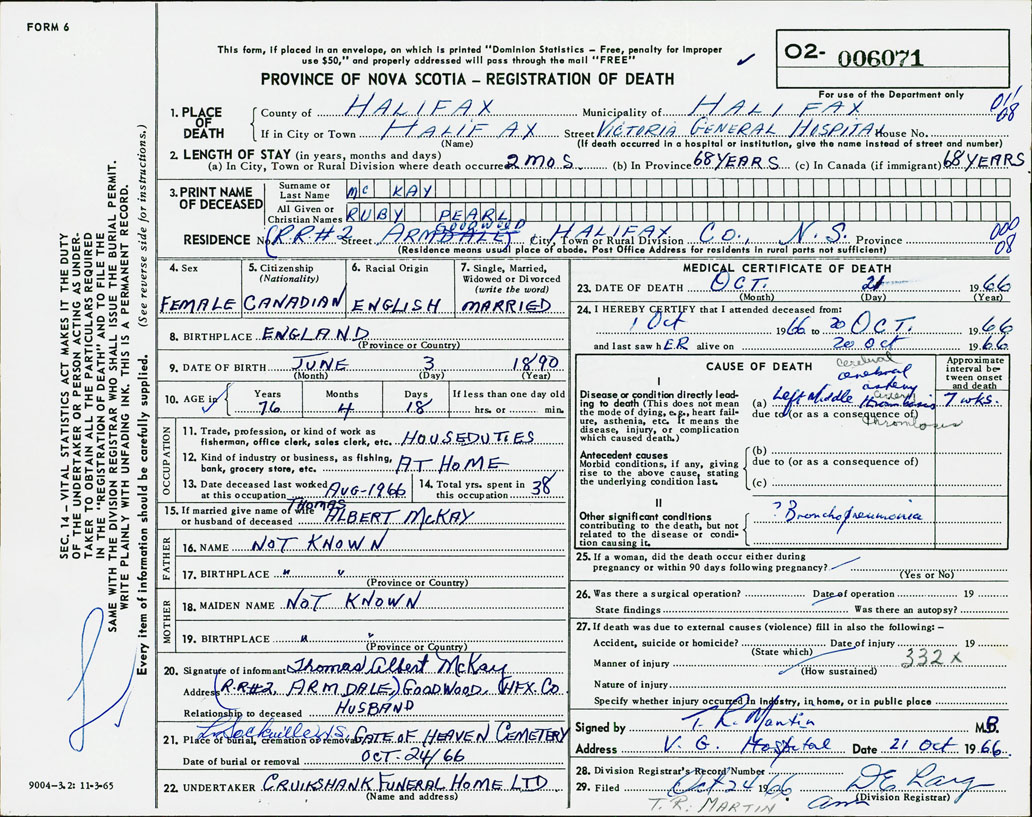 FORM 6
This form, if placed in an envelope, on which is printed "Dominion Statistics – Free, penalty for improper
use $50," and properly addressed will pass through the mail "FREE"
O2- 006071
PROVINCE OF NOVA SCOTIA – REGISTRATION OF DEATH
For use of the Department only
011
08
1. PLACE OF DEATH
County of HALIFAX Municipality of HALIFAX
If in City or Town HALIFAX Street VICTORIA GENERAL HOSPITAL House No.
(Name) (If death occurred in a hospital or institution, give the name instead of street and number)
2. LENGTH OF STAY (in years, months and days)
(a) In City, Town or Rural Division where death occurred 2 MOS (b) In Province 68 YEARS (c) In Canada (if immigrant) 68 YEARS
3. PRINT NAME OF DECEASED
Surname or Last Name Mc KAY
All Given or Christian Names RUBY PEARL
GOODWOOD
RESIDENCE No. (R.R.#2 Street ARMDALE) City, Town or Rural Division HALIFAX CO., N.S. Province
(Residence means usual place of abode. Post Office Address for residents in rural parts not sufficient)
000
08
4. Sex FEMALE
5. Citizenship (Nationality) CANADIAN
6. Racial Origin ENGLISH
7. Single, Married, Widowed or Divorced (write the word) MARRIED
8. BIRTHPLACE ENGLAND
(Province or Country)
9. DATE OF BIRTH JUNE 3 1890
(Month) (Day) (Year)
10. AGE in Years Months Days If less than one day old
76 4 18 hrs. or min.
OCCUPATION
11. Trade, profession, or kind of work as
fisherman, office clerk, sales clerk, etc. HOUSEDUTIES
12. Kind of industry or business, as fishing,
bank, grocery store, etc. AT HOME
13. Date deceased last worked at this occupation AUG-1966
14. Total yrs. spent in this occupation 38
15. If married give name of wife or husband of deceased Thomas ALBERT McKAY
FATHER
16. NAME NOT KNOWN
17. BIRTHPLACE " "
(Province or Country)
MOTHER
18. MAIDEN NAME NOT KNOWN
19. BIRTHPLACE " "
(Province or Country)
20. Signature of informant Thomas Albert McKay
Address (R.R#2, ARMDALE,) GOODWOOD, HFX. CO.
Relationship to deceased HUSBAND
L. Sackville N.S.
21. Place of burial, cremation or removal GATE OF HEAVEN CEMETERY
Date of burial or removal OCT. 24/66
22. UNDERTAKER CRUIKSHANK FUNERAL HOME LTD
(Name and address)
MEDICAL CERTIFICATE OF DEATH
23. DATE OF DEATH OCT. 21 1966
(Month) (Day) (Year)
24. I HEREBY CERTIFY that I attended deceased from:
1 Oct 1966 to 20 OCT. 1966
and last saw hER alive on 20 Oct 1966
CAUSE OF DEATH
Approximate interval between onset and death
I
Disease or condition directly leading to death (This does not mean the mode of dying, e.g., heart failure, asthenia, etc. It means the disease, injury, or complication which caused death.)
cerebral
cerebral
artery
(a) Left Middle thrombosis 7 wks.
due to (or as a consequence of)
thrombosis
Antecedent causes
Morbid conditions, if any, giving rise to the above cause, stating the underlying condition last.
(b)
due to (or as a consequence of)
(c)
II
Other significant conditions
contributing to the death, but not related to the disease or condition causing it.
? Bronchopneumonia
25. If a woman, did the death occur either during
pregnancy or within 90 days following pregnancy?
(Yes or No)
26. Was there a surgical operation? Date of operation 19
State findings Was there an autopsy?
27. If death was due to external causes (violence) fill in also the following: –
Accident, suicide or homicide? Date of injury 19
(State which)
Manner of injury 332 x
(How sustained)
Nature of injury
Specify whether injury occurred in industry, in home, or in public place
Signed by T. R. Martin M.D.
Address V. G. Hospital Date 21 Oct 1966.
28. Division Registrar's Record Number
29. Filed Oct 24 1966
(Division Registrar)
T. R. MARTIN
SEC. 14 – VITAL STATISTICS ACT MAKES IT THE DUTY
OF THE UNDERTAKER OR PERSON ACTING AS UNDER-
TAKER TO OBTAIN ALL THE PARTICULARS REQUIRED
IN THE "REGISTRATION OF DEATH" AND TO FILE THE
SAME WITH THE DIVISION REGISTRAR WHO SHALL ISSUE THE BURIAL PERMIT.
WRITE PLAINLY WITH UNFADING INK. THIS IS A PERMANENT RECORD.
Every item of information should be carefully supplied. (See reverse side for instructions.)
9004–3.2: 11-3-65